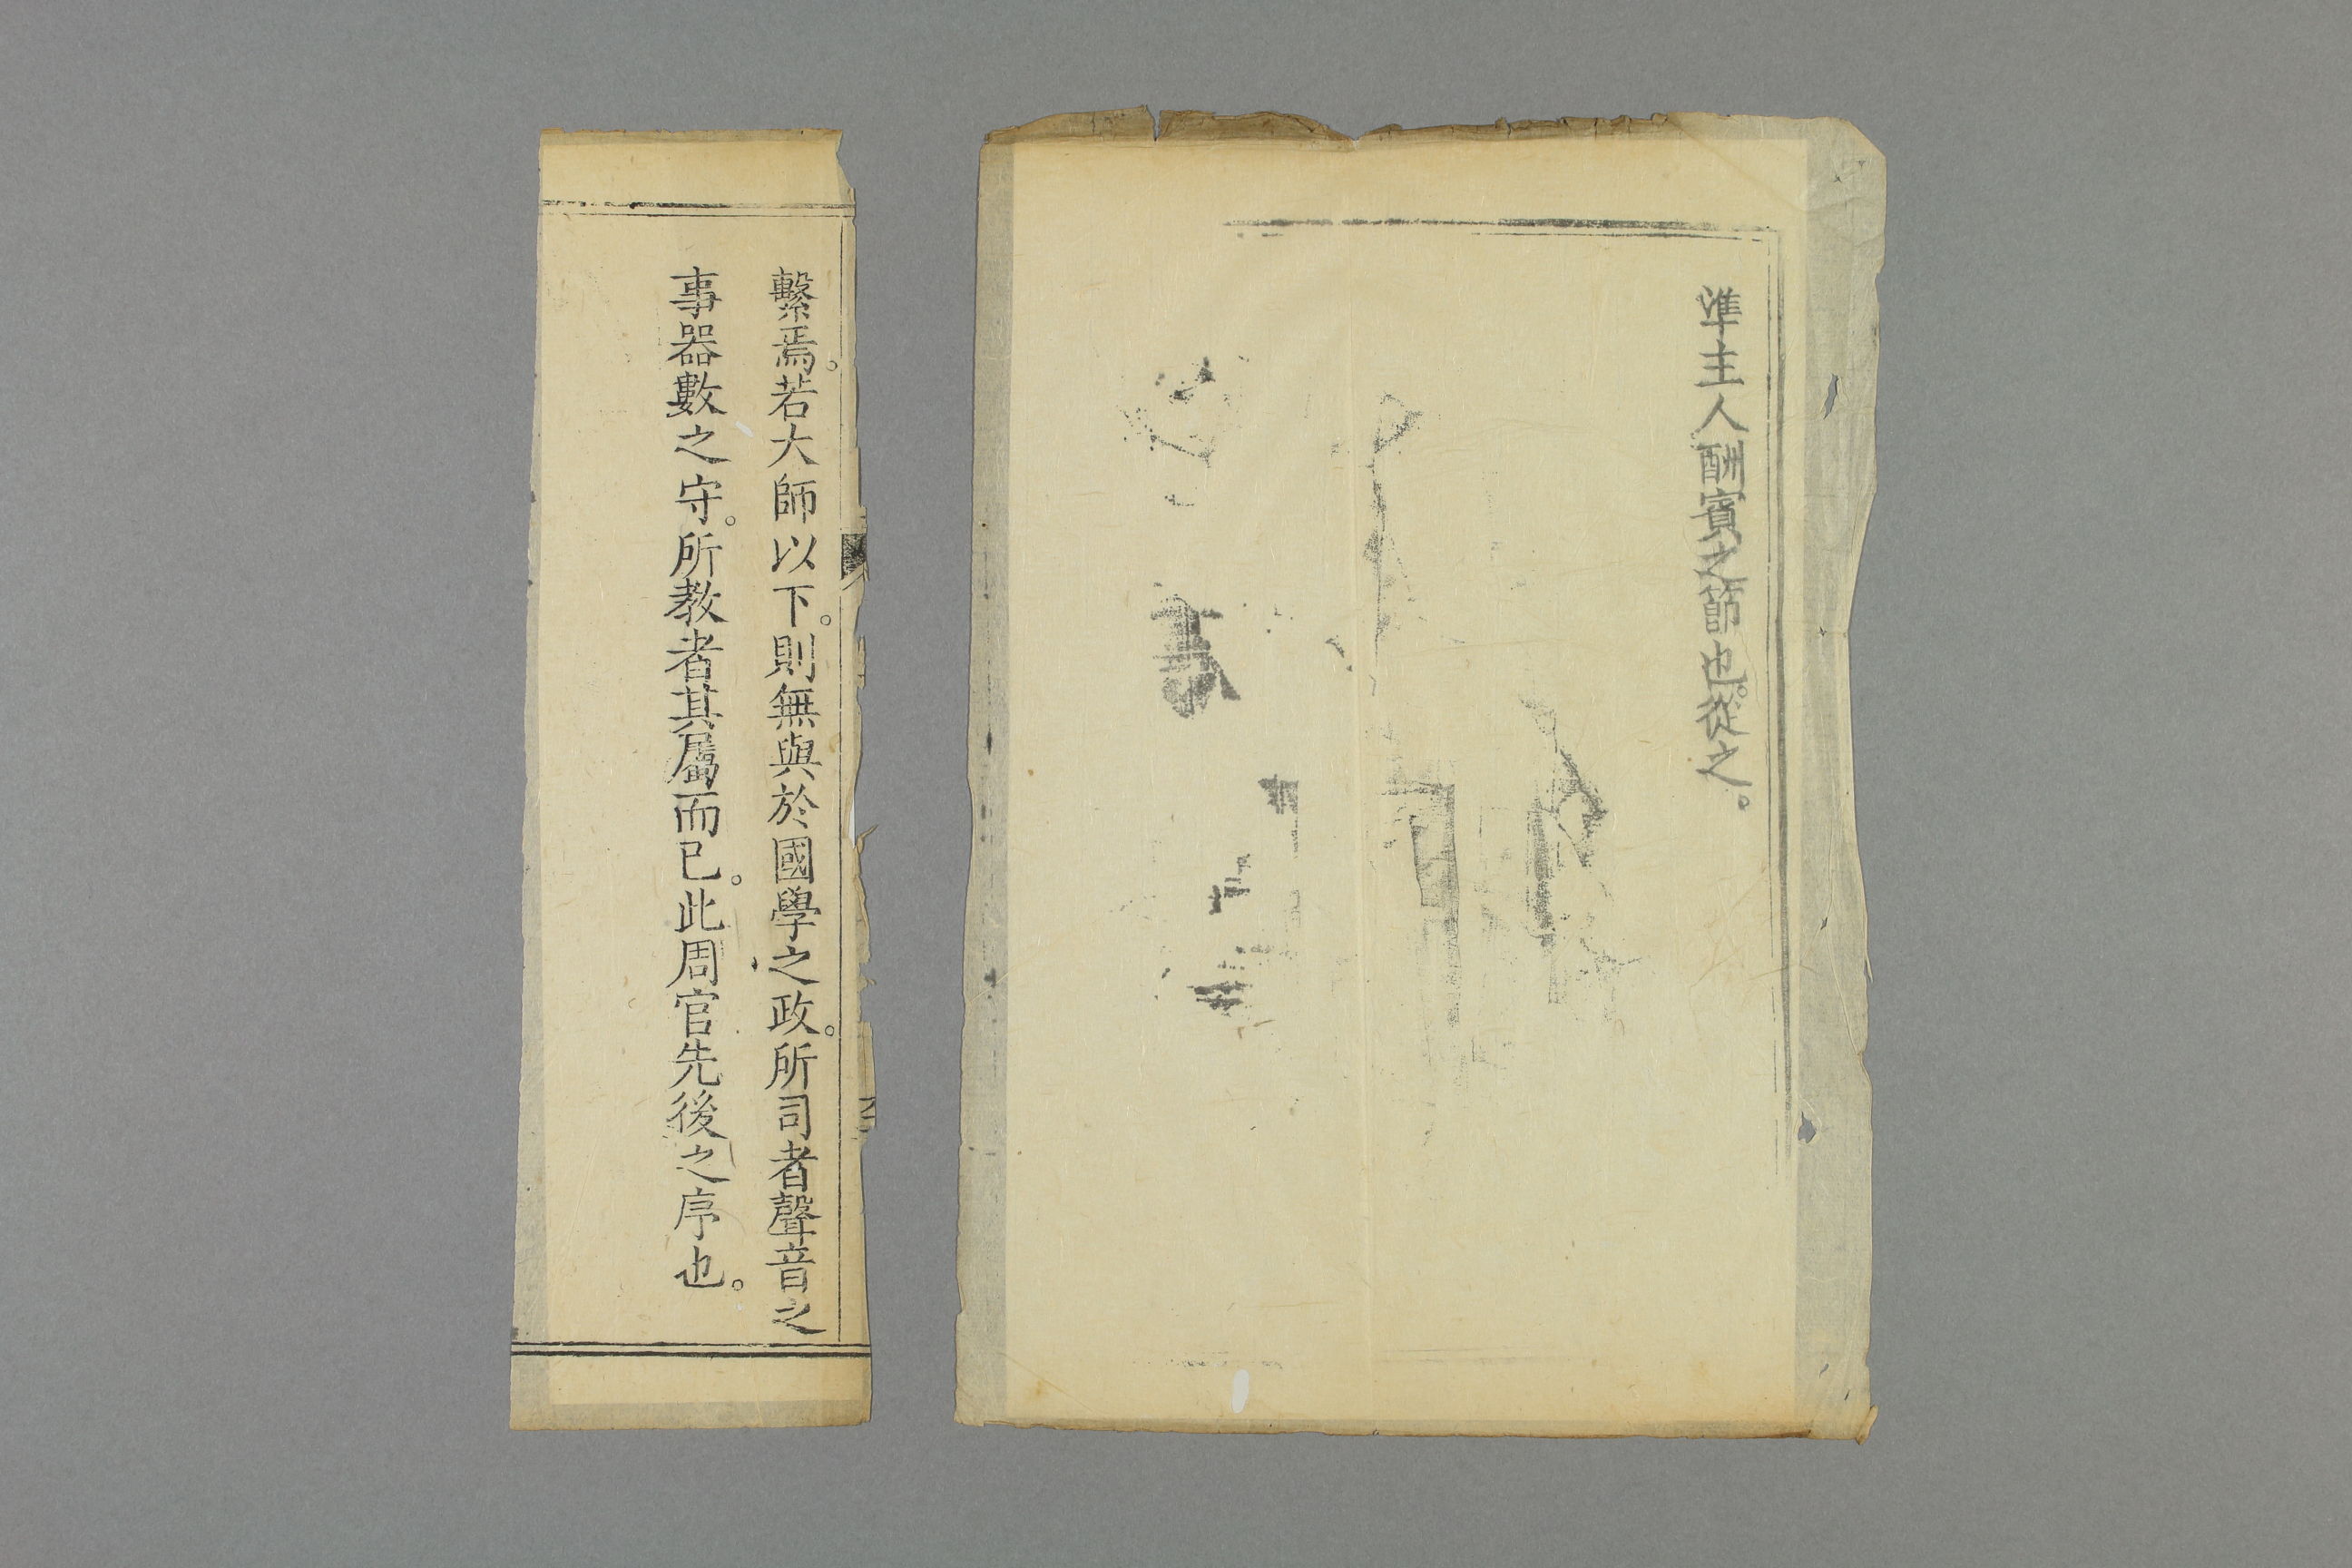 準主人酬賓之節也。從之。
繫焉。若大師以下。則無與於國學之政。所司者聲音之
事器數之守。所教者其屬而已。此周官先後之序也。